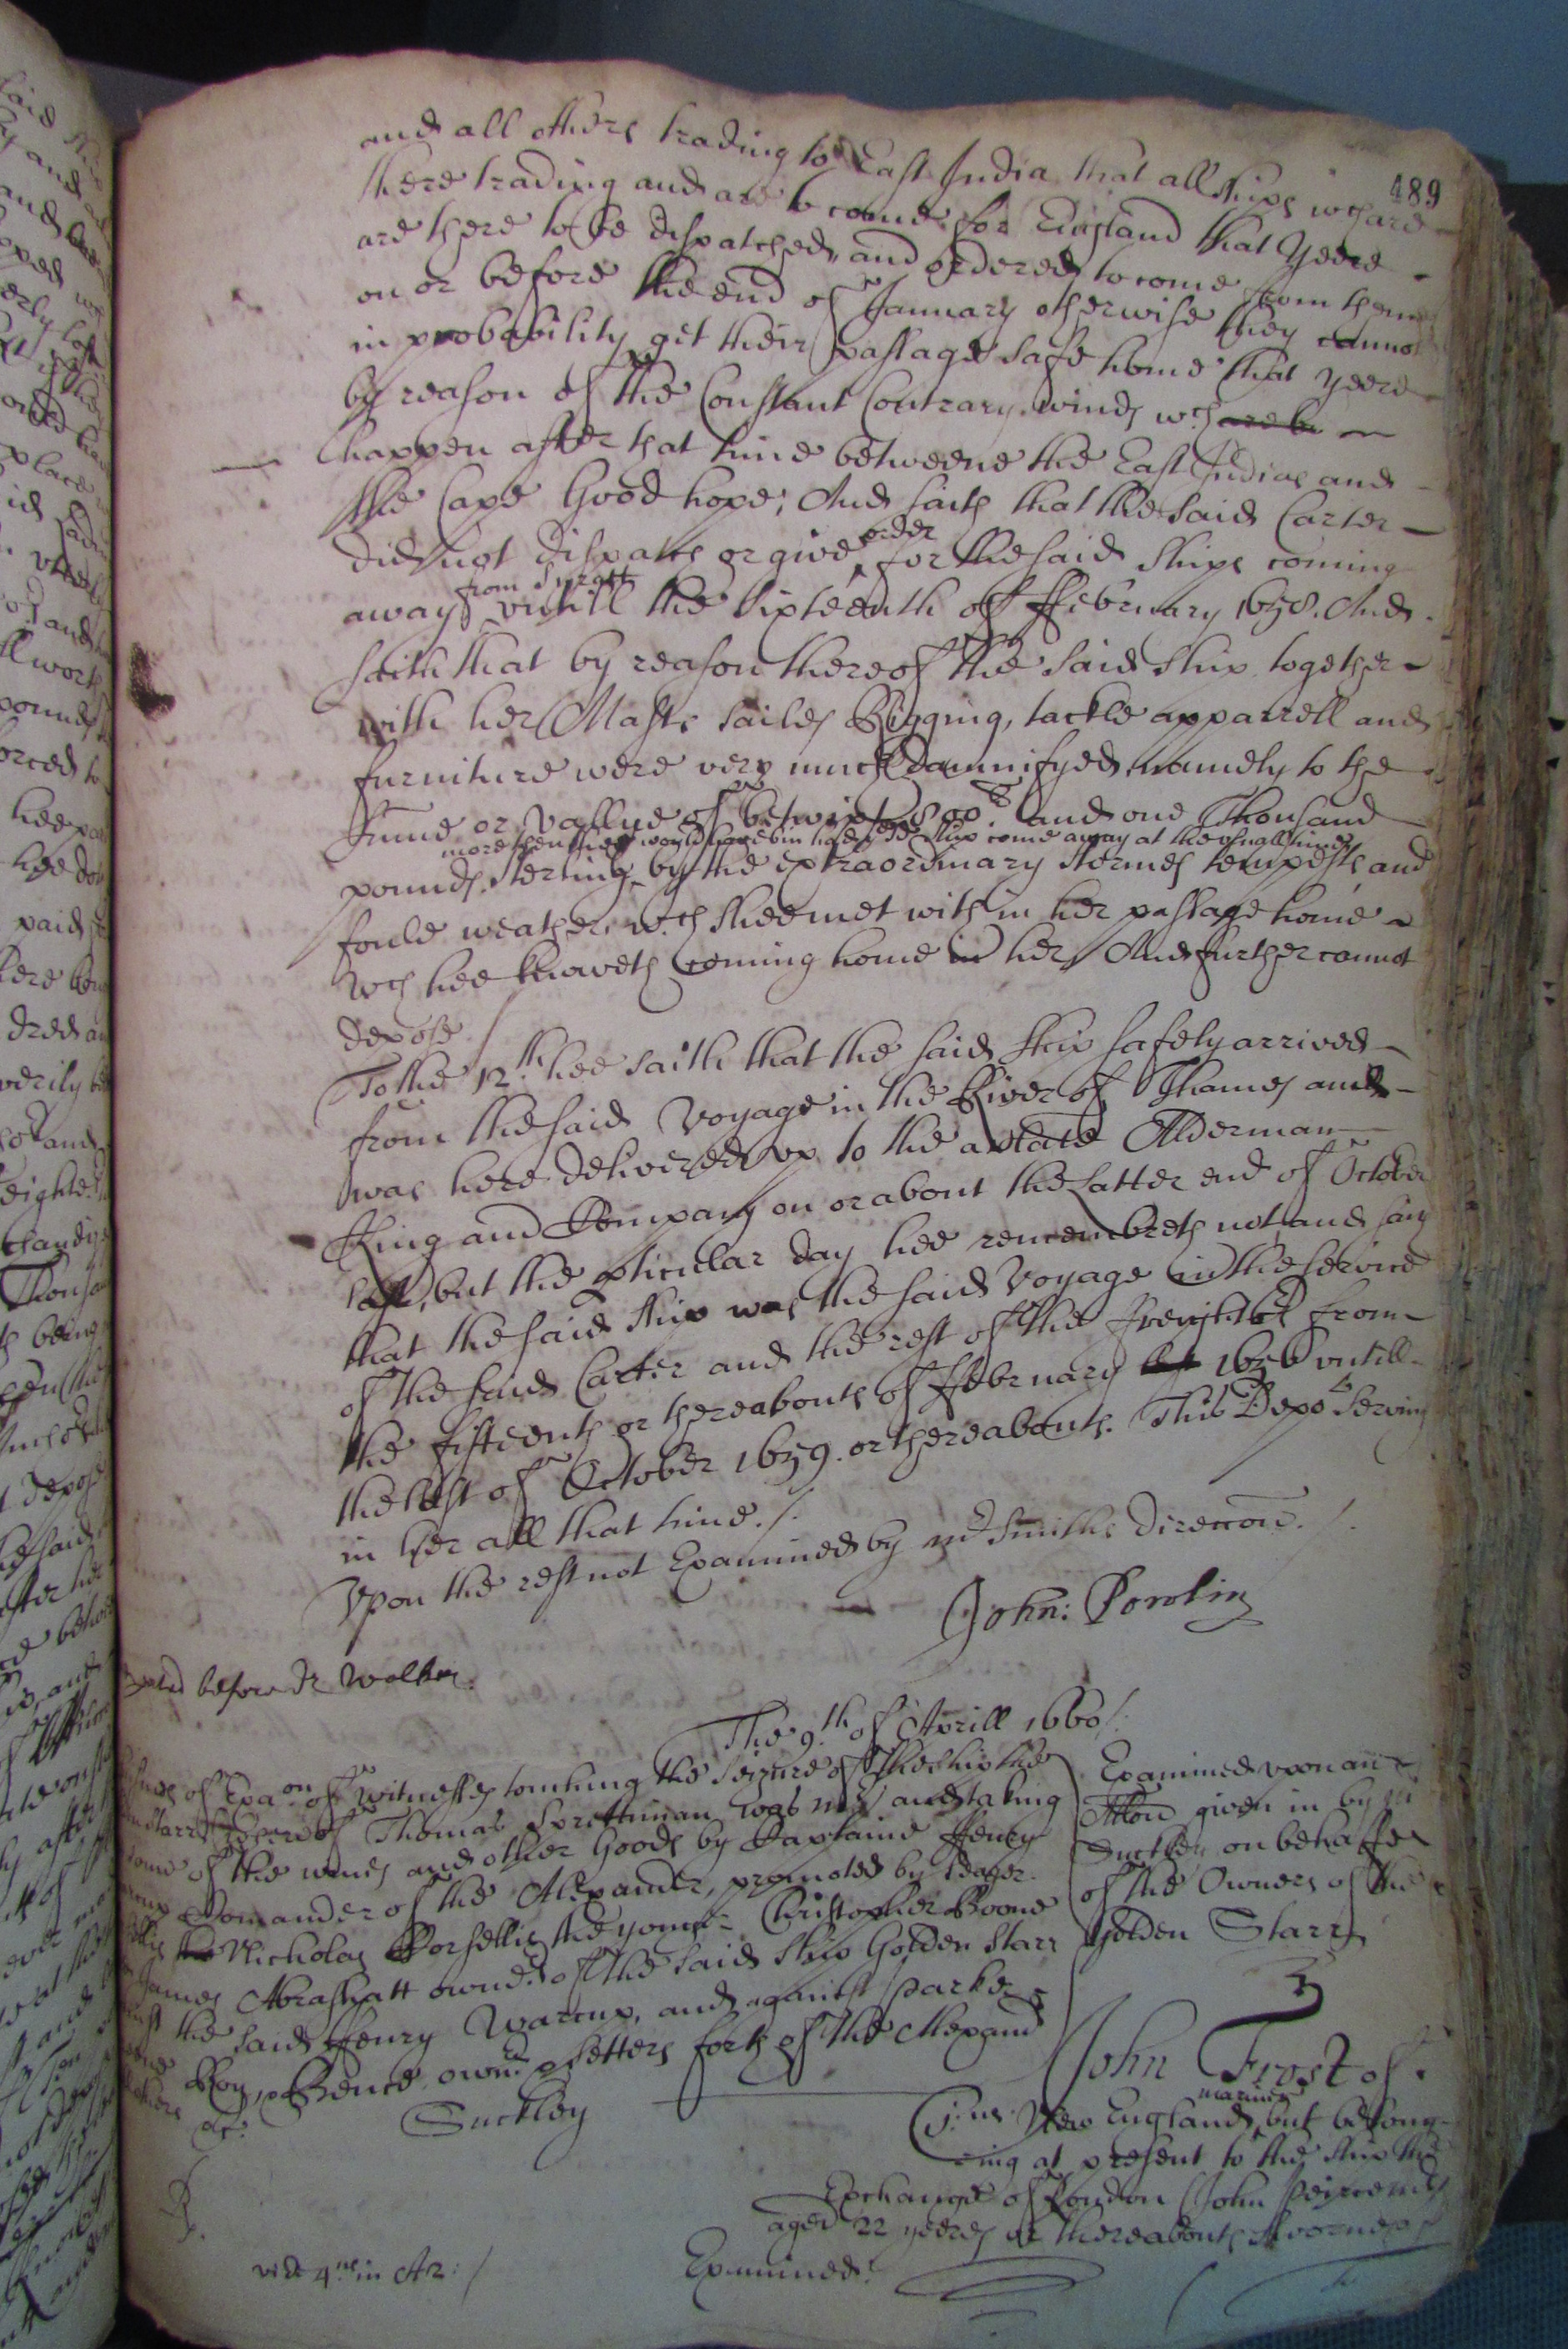 489
and all others trading to East India that all ships wch are
there trading and are to come for England that yeere
are there to be dispatched, and ordered to come from thence
on or before the end of January otherwise they cannot
in probability get their passage safe home that yeere
by reason of the Constant Contrary winds wch are
happen after that time betweene the East Indias and
the Cape Good hope; And saith that the said Carter
did not dispatch or give order for the said ships coming
away from Suratt untill the sixteenth of ffebruary 1658. And
saith that by reason thereof the said ship together
with her Masts sailes Rigging, tackle apparrell and
furniture were very much damnifyed, namely to the
summe or vallue of betwixt 800 li and one Thousand
more then they would have bin had the sd ship come away at the usuall time
pounds sterling by the extraordinary stormes tempests, and
foule weather wch shee met with in her passage home
wch hee knoweth coming home in her, And further cannot
depose /
To the 12th hee saith that the said ship safely arrived
from the said Voyage in the River of Thames and
was here delivered up to the Alderman
King and Company on or about the latter end of October
last, but the pticular day hee remembreth not, and saith
that the said ship was the said Voyage in the service
of the said Carter and the rest of the freighters from
the fifteenth or thereabouts of ffebruary 1656 untill
the last of October 1659. or thereabouts. This Depot serving
in her all that time. /.
Upon the rest not Examined by mr Smiths direccon. /.
John: Powlin
before Dr Walker.
The 9th of Aprill 1660 /.
of Exaon of witnesses touching the seizure of the ship the
Starr whereof Thomas Sprittiman was mr and taking
some of the wines and other Goods by Captaine Henry
Comander of the Alexander, promoted by
the Nicholas Corsellis the younr Christopher Boone
James Abrashatt owners of the said ship Golden Starr
the said Henry Warcup, and against Parker
Roy, Bence ownrs setters forth of the Alexandr
&c. Suckley
Examined upon an
Allon given in by mr
Suckley on behalfe
of the Owners of the
Golden Starr
John Frost of
New England mariner, but belong-
ing at present to the ship the
Exchange of London (John Peirce mr)
aged 22 yeeres or thereabouts sworne
Examined.
vide 4 in A2: /